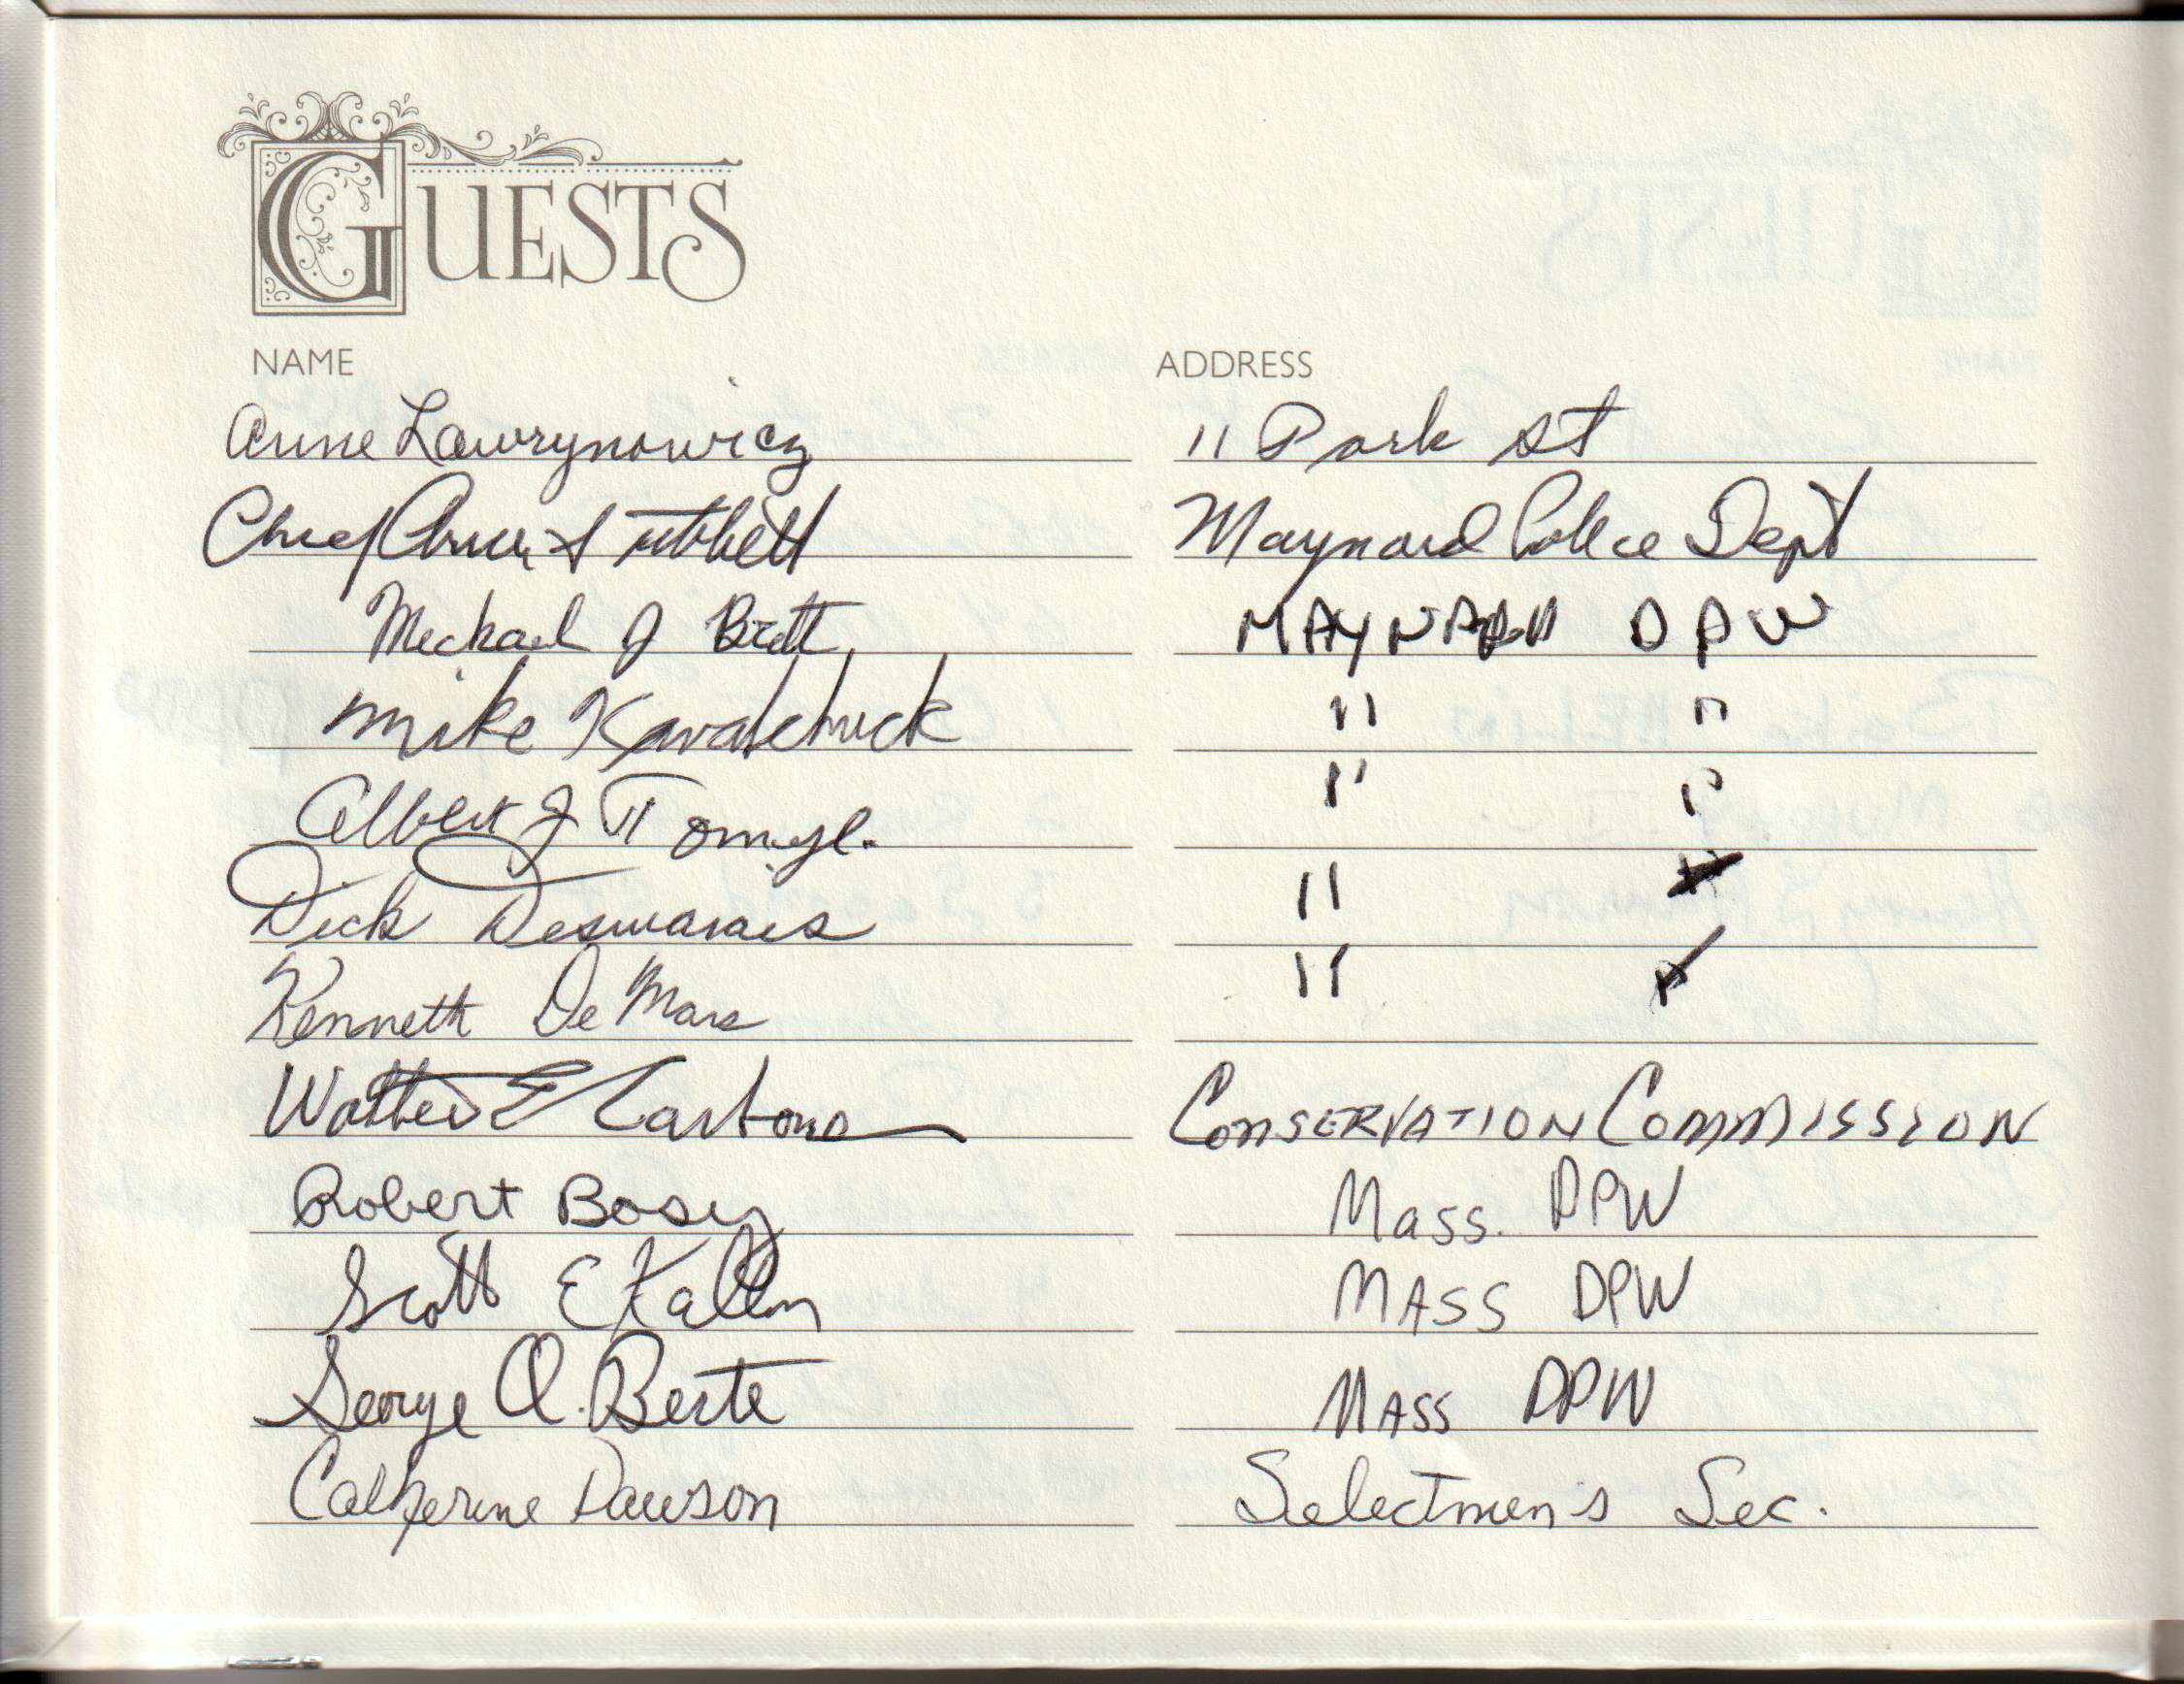 GUESTS
NAME ADDRESS
Anne Lawrynowicz 11 Park St
Chief Maynard Police Dept
Michael J Brett MAYNARD DPW
Mike Kavalchuck " "
Albert J " "
Dick Desmarais "
Kenneth DeMars "
Walter E Carbone CONSERVATION COMMISSION
Robert Bosey Mass. DPW
Scott E Kallm MASS DPW
George A. Berte MASS DPW
Catherine Dawson Selectmen's Sec.